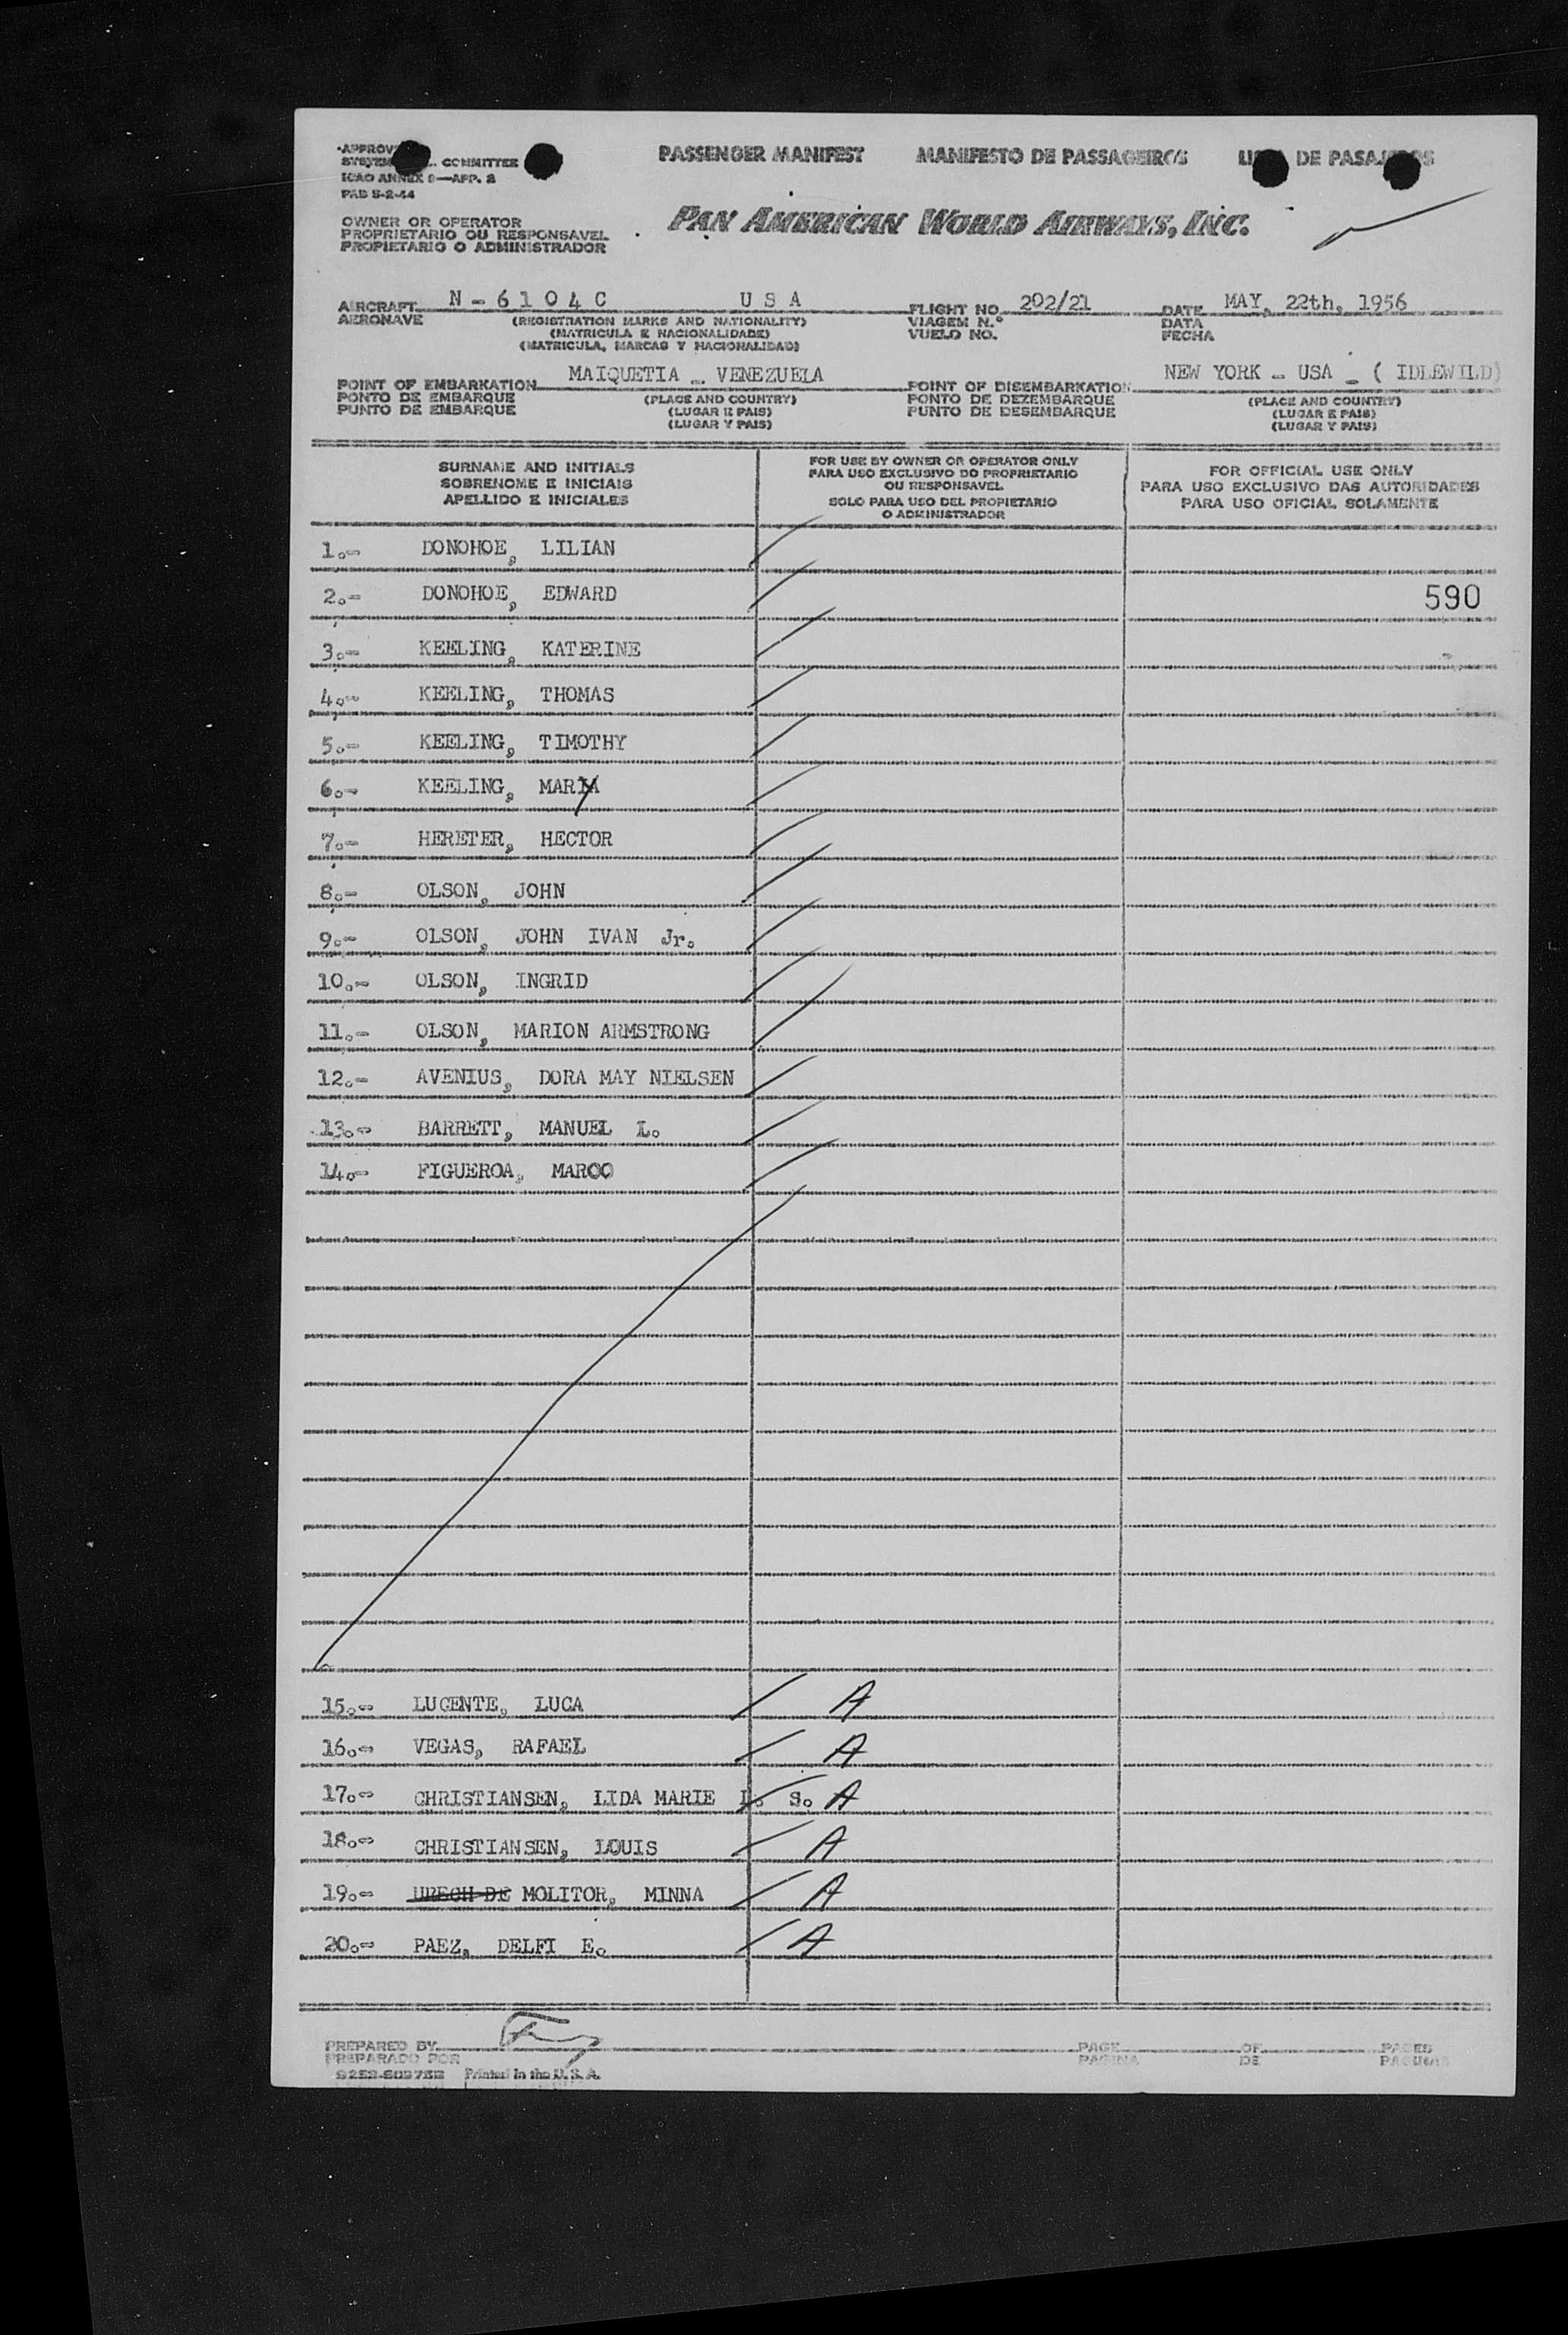 PASSENGER MANIFEST MANIFESTO DE PASSAGEIROS DE
COMMITTEE
ICAO ANNEX 9—APP. 2
PAB 5-2-44
OWNER OR OPERATOR
PROPRIETARIO OU RESPONSAVEL
PROPIETARIO O ADMINISTRADOR
PAN AMERICAN WORLD AIRWAYS, INC.
AIRCRAFT N-6104C USA FLIGHT NO. 202/21 DATE MAY, 22th, 1956
AERONAVE (REGISTRATION MARKS AND NATIONALITY) VIAGEM N.° DATA
(MATRICULA E NACIONALIDADE) VUELO NO. FECHA
(MATRICULA, MARCAS Y NACIONALIDAD)
POINT OF EMBARKATION MAIQUETIA - VENEZUELA POINT OF DISEMBARKATION NEW YORK - USA - ( IDLEWILD)
PONTO DE EMBARQUE (PLACE AND COUNTRY) PONTO DE DEZEMBARQUE (PLACE AND COUNTRY)
PUNTO DE EMBARQUE (LUGAR E PAIS) PUNTO DE DESEMBARQUE (LUGAR E PAIS)
(LUGAR Y PAIS) (LUGAR Y PAIS)
SURNAME AND INITIALS
SOBRENOME E INICIAIS
APELLIDO E INICIALES
FOR USE BY OWNER OR OPERATOR ONLY
PARA USO EXCLUSIVO DO PROPRIETARIO
OU RESPONSAVEL
SOLO PARA USO DEL PROPIETARIO
O ADMINISTRADOR
FOR OFFICIAL USE ONLY
PARA USO EXCLUSIVO DAS AUTORIDADES
PARA USO OFICIAL SOLAMENTE
1.- DONOHOE, LILIAN
2.- DONOHOE, EDWARD 590
3.- KEELING, KATERINE
4.- KEELING, THOMAS
5.- KEELING, TIMOTHY
6.- KEELING, MARY
7.- HERETER, HECTOR
8.- OLSON, JOHN
9.- OLSON, JOHN IVAN Jr.
10.- OLSON, INGRID
11.- OLSON, MARION ARMSTRONG
12.- AVENIUS, DORA MAY NIELSEN
13.- BARRETT, MANUEL L.
14.- FIGUEROA, MARCO
15.- LUCENTE, LUCA A
16.- VEGAS, RAFAEL A
17.- CHRISTIANSEN, LIDA MARIE S. A
18.- CHRISTIANSEN, LOUIS A
19.- URECH DE MOLITOR, MINNA A
20.- PAEZ, DELFI E. A
PREPARED BY PAGE OF PAGES
PREPARADO POR PAGINA DE PAGINAS
Printed in the U.S.A.